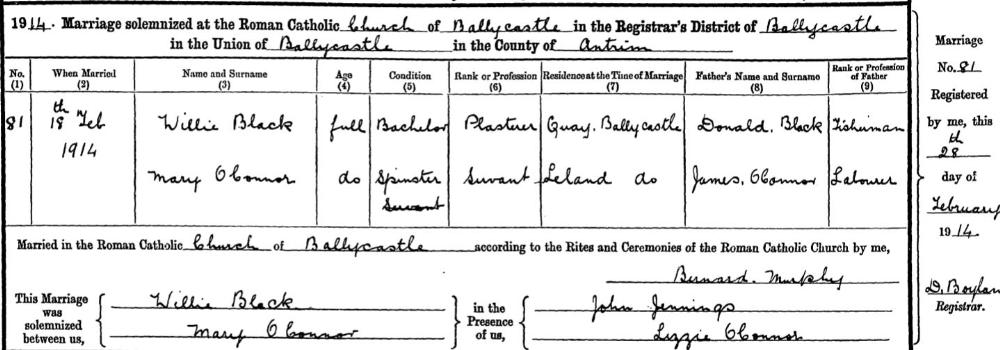 1914. Marriage solemnized at the Roman Catholic Church of Ballycastle in the Registrar's District of Ballycastle
in the Union of Ballycastle in the County of Antrim
No. (1) When Married (2) Name and Surname (3) Age (4) Condition (5) Rank or Profession (6) Residence at the Time of Marriage (7) Father's Name and Surname (8) Rank or Profession of Father (9)
81 18th Feb 1914 Willie Black full Bachelor Plasterer Quay, Ballycastle Donald, Black Fisherman
Mary O'Connor do Spinster Servant Leland do James, O'Connor Labourer
Servant
Married in the Roman Catholic Church of Ballycastle according to the Rites and Ceremonies of the Roman Catholic Church by me,
Bernard. Murphy
This Marriage was solemnized between us,
Willie Black
Mary O'Connor
in the Presence of us,
John Jennings
Lizzie O'Connor
Marriage
No. 81
Registered
by me, this
28th
day of
February
1914.
D. Boylan
Registrar.